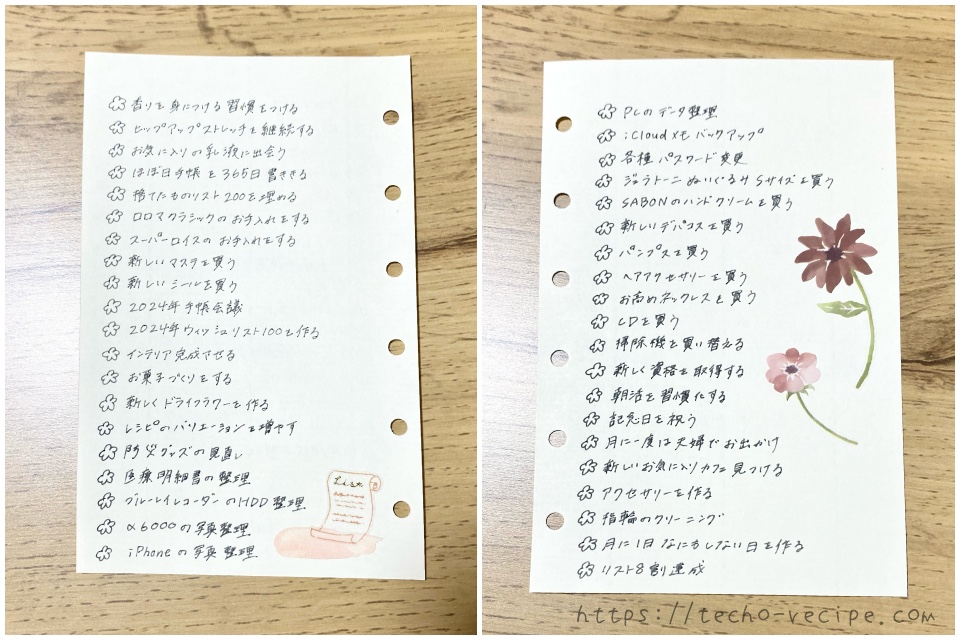 香りを身につける習慣をつける
ヒップアップストレッチを継続する
お気に入りの乳液に出会う
ほぼ日手帳を365日書ききる
捨てたものリスト200を埋める
ロロマクラシックのお手入れをする
スーパーロイスのお手入れをする
新しいマステを買う
新しいシールを買う
2024年手帳会議
2024年ウィッシュリスト100を作る
インテリア完成させる
お菓子づくりをする
新しくドライフラワーを作る
レシピのバリエーションを増やす
防災グッズの見直し
医療明細書の整理
ブルーレイレコーダーのHDD整理
α6000の写真整理
iPhoneの写真整理
List
PCのデータ整理
iCloudメモバックアップ
各種パスワード変更
ジェラトーニぬいぐるみSサイズを買う
SABONのハンドクリームを買う
新しいデパコスを買う
パンプスを買う
ヘアアクセサリーを買う
お高めネックレスを買う
CDを買う
掃除機を買い替える
新しく資格を取得する
朝活を習慣化する
記念日を祝う
月に一度は夫婦でお出かけ
新しいお気に入りカフェ見つける
アクセサリーを作る
指輪のクリーニング
月に1日なにもしない日を作る
リスト8割達成
https://techo-recipe.com